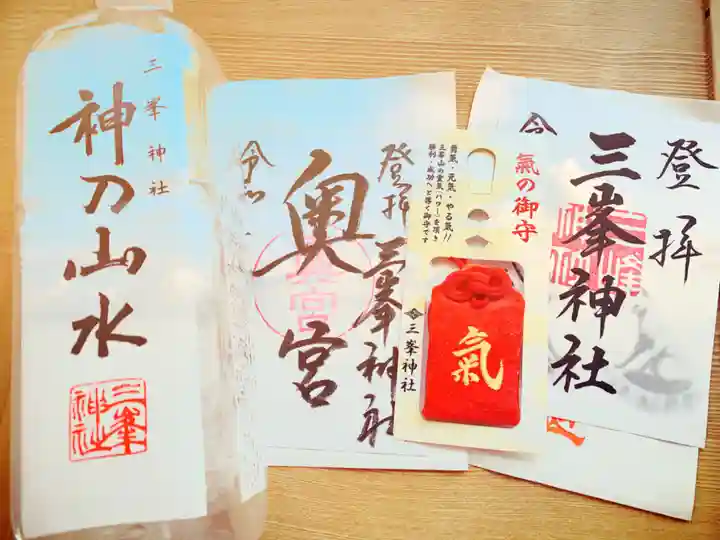 三峯神社
神乃山水
三峯
神社
登拝
三峯神社
奥宮
令和
勇気・元気・やる気!!
三峯山の霊氣(パワー)を頂き
勝利・成功へと導く御守です
氣の御守
三峯神社
氣
登拝
三峯神社